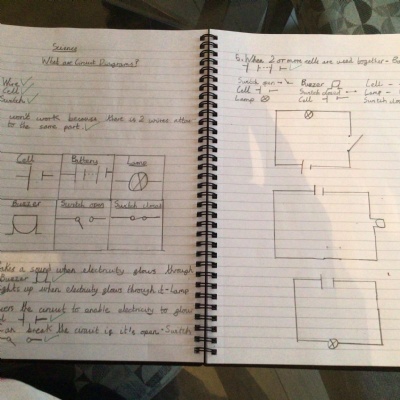 Science
What are Circuit Diagrams?
Wire
Cell
Switch
wont work because there is 2 wires
to the same part.
Cell Battery Lamp
Buzzer Switch open Switch closed
a sound when electricity glows through
Buzzer
lights up when electricity glows through it - Lamp
the circuit to enable electricity to glow
break the circuit if it's open - Switch
5. When 2 or more cells are used together -
Switch open - Buzzer Cell -
Cell Switch closed Lamp -
Lamp Cell Switch